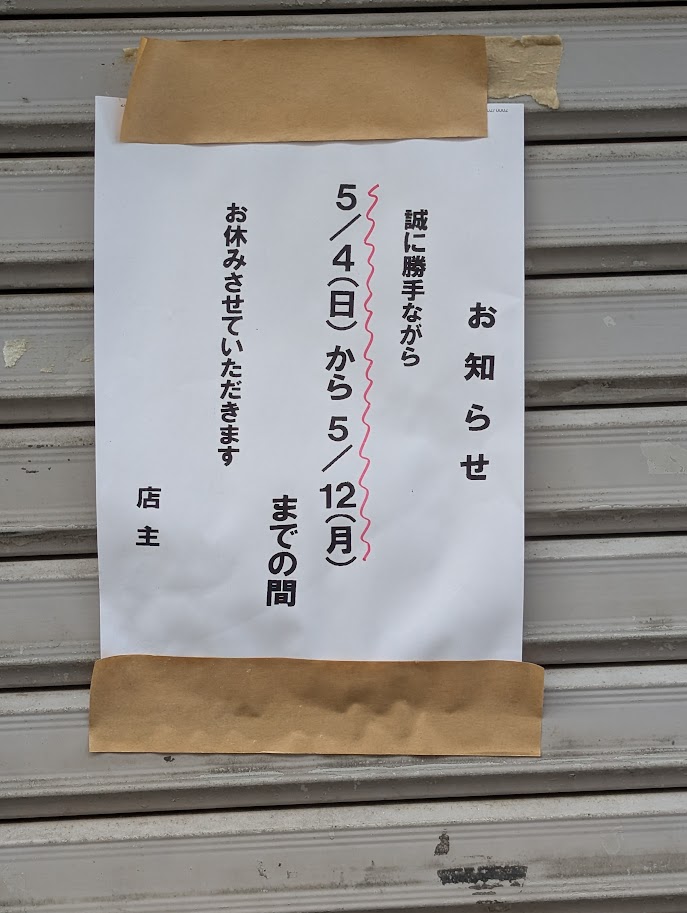 お知らせ
誠に勝手ながら
5/4(日)から5/12(月)
までの間
お休みさせていただきます
店主